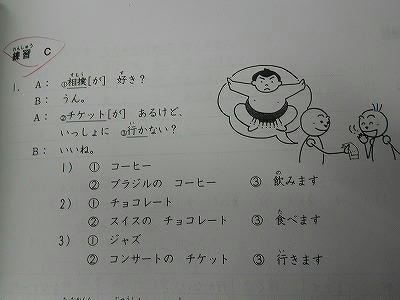 れんしゅう
練習 C
1. A: ①相撲[が] 好き?
B: うん。
A: ②チケット[が] あるけど、
いっしょに ③行かない?
B: いいね。
1) ① コーヒー
② ブラジルの コーヒー ③ 飲みます
2) ① チョコレート
② スイスの チョコレート ③ 食べます
3) ① ジャズ
② コンサートの チケット ③ 行きます